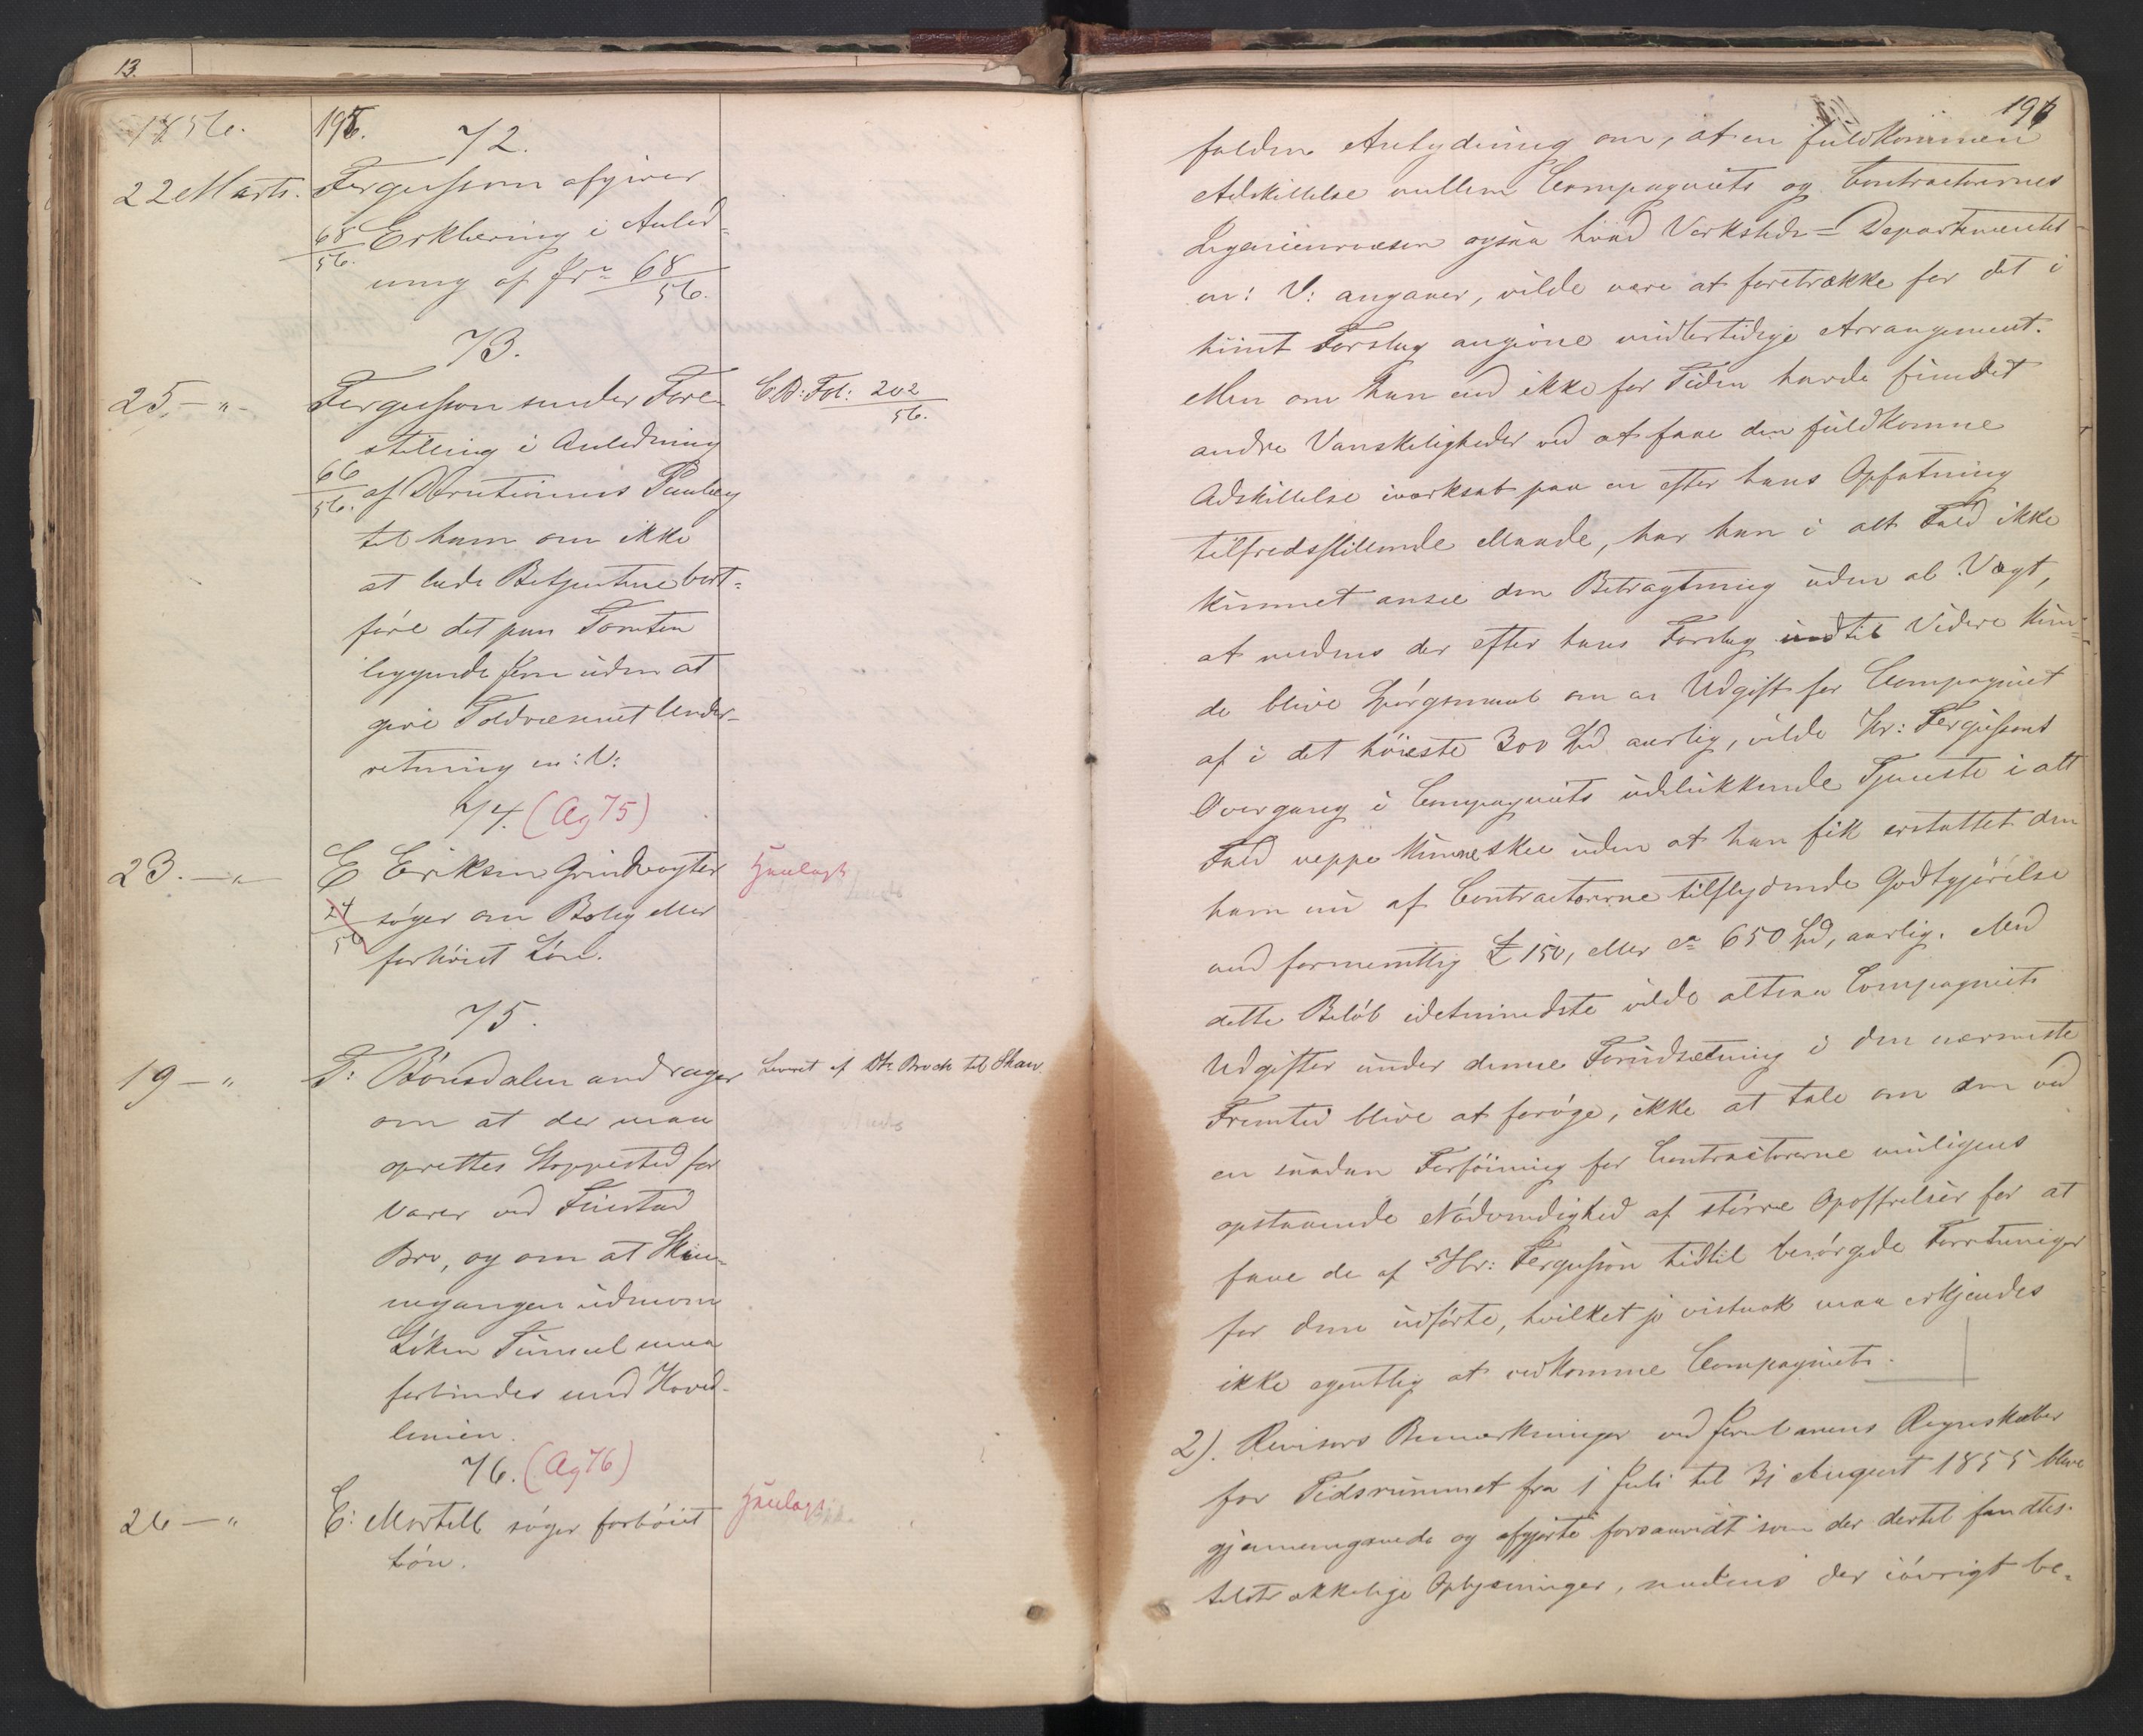 13.
1856.
195.
72.
22 Marts.
Fergusson afgiver
68/56. Erklæring i Anled-
ning af Jr. 68/56.
73.
25,—"—
Fergusson sender Fore-
stilling i Anledning
66/56. af Directionens Paalæg
til ham om ikke
at lade Betjentene bort-
føre det paa Tomten
liggende Jern uden at
give Toldvæsenet Under-
retning m: V:
C.D: Fol: 202/56.
74. (Ag 75)
23.—"—
E Eriksen Grindvogter
24/56 søger om Bolig eller
forhöiet Lön.
Henlagt
75.
19—"
T: Bönsdalen andrager
om at der maa
oprettes Stoppested for
Varer ved Finstad
Bro, og om at Skin-
negangen udenom
Löken Tunnel maa
forbindes med Hoved-
linien.
Leveret af Dr. Broch til Skav.
76. (Ag 76)
26—"
E: Martell søger forhöiet
Lön.
Henlagt
196
falden Antydning om, at en fuldkommen
Adskillelse mellem Compagniets og Contractorernes
Ingenieurvæsen ogsaa hvad Verksteds-Departementet
m: V: angaaer, vilde være at foretrække for det i
hiint Forslag angivne midlertidige Arrangement.
Men om han end ikke for Tiden havde fundet
andre Vanskeligheder ved at faae den fuldkomne
Adskillelse iværksat paa en efter hans Opfatning
tilfredsstillende Maade, har han i alt Fald ikke
kunnet ansee den Betragtning uden al Vægt,
at medens der efter hans Forslag indtil Videre kun-
de blive Spörgsmaal om en Udgift for Compagniet
af i det höieste 300 Spd aarlig, vilde Hr: Fergussons
Overgang i Compagniets udelukkende Tjeneste i alt
Fald neppe kunne skee uden at han fik erstattet den
ham nu af Contractorerne tilflydende Godtgjörelse
med formentlig £ 150, eller ca 650 Spd, aarlig. Med
dette Belöb idetmindste vilde altsaa Compagniets
Udgifter under denne Forudsætning i den nærmeste
Fremtid blive at foröge, ikke at tale om den ved
en saadan Forföining for Contractorerne muligens
opstaaende Nödvendighed af större Opoffrelser for at
faae de af Hr: Fergusson hidtil besörgede Forretninger
for dem udförte, hvilket jo vistnok maa erkjendes
ikke egentlig at vedkomme Compagniet.
2). Revisors Bemærkninger ved Jernbanens Regnskaber
for Tidsrummet fra 1 Juli til 31 August 1855 bleve
gjennemgaaede og afgjorte forsaavidt som der dertil fandtes
tilstrækkelige Oplysninger, medens der iövrigt be-